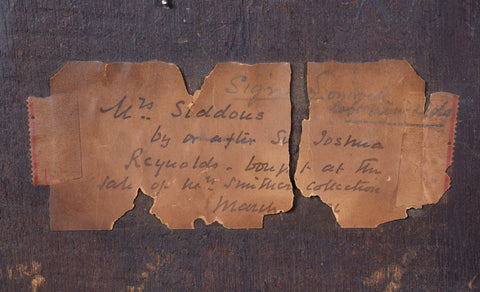 Mrs Siddons
by or after Sir Joshua
Reynolds - bought at the
sale of Mrs Smither collection
March